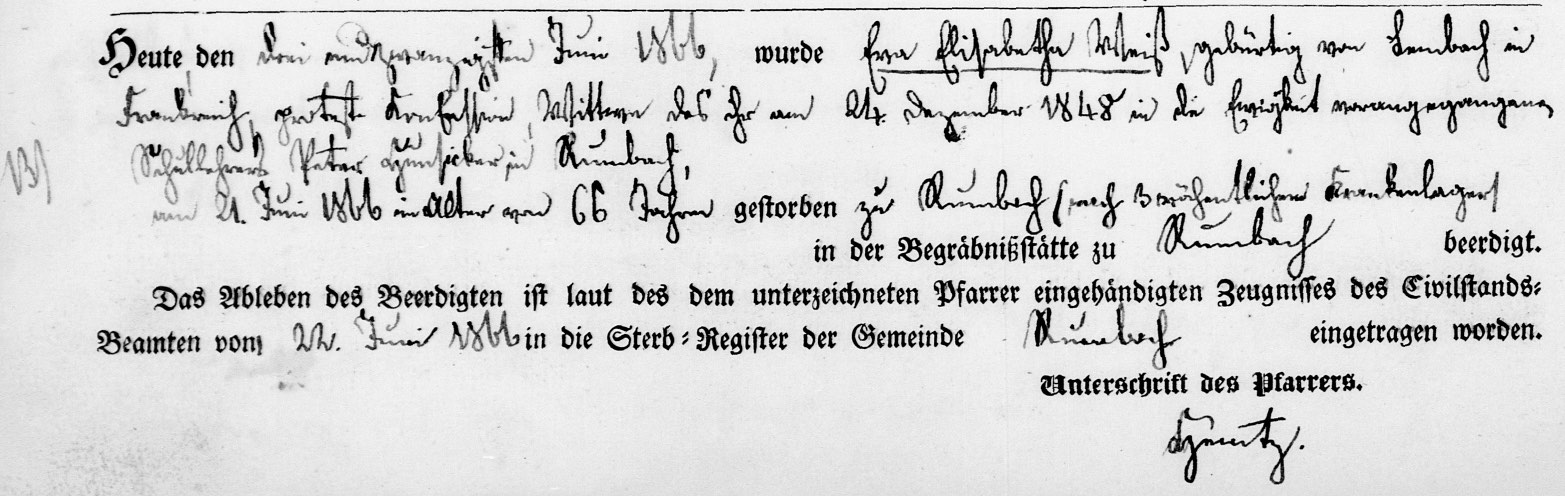 Heute den drei und zwanzigsten Juni 1866, wurde Eva Elisabetha Weiß, gebürtig von Lembach in
Frankreich, protest. Konfession, Wittwe des ihr am 24. Dezember 1848 in die Ewigkeit vorangegangenen
Schullehrers Peter Hunsicker in Rumbach,
am 21. Juni 1866 im Alter von 66 Jahren gestorben zu Rumbach (nach 3 wöchentlichem Krankenlager)
in der Begräbnißstätte zu Rumbach beerdigt.
Das Ableben des Beerdigten ist laut des dem unterzeichneten Pfarrer eingehändigten Zeugnisses des Civilstands-
Beamten vom 22. Juni 1866 in die Sterb-Register der Gemeinde Rumbach eingetragen worden.
Unterschrift des Pfarrers.